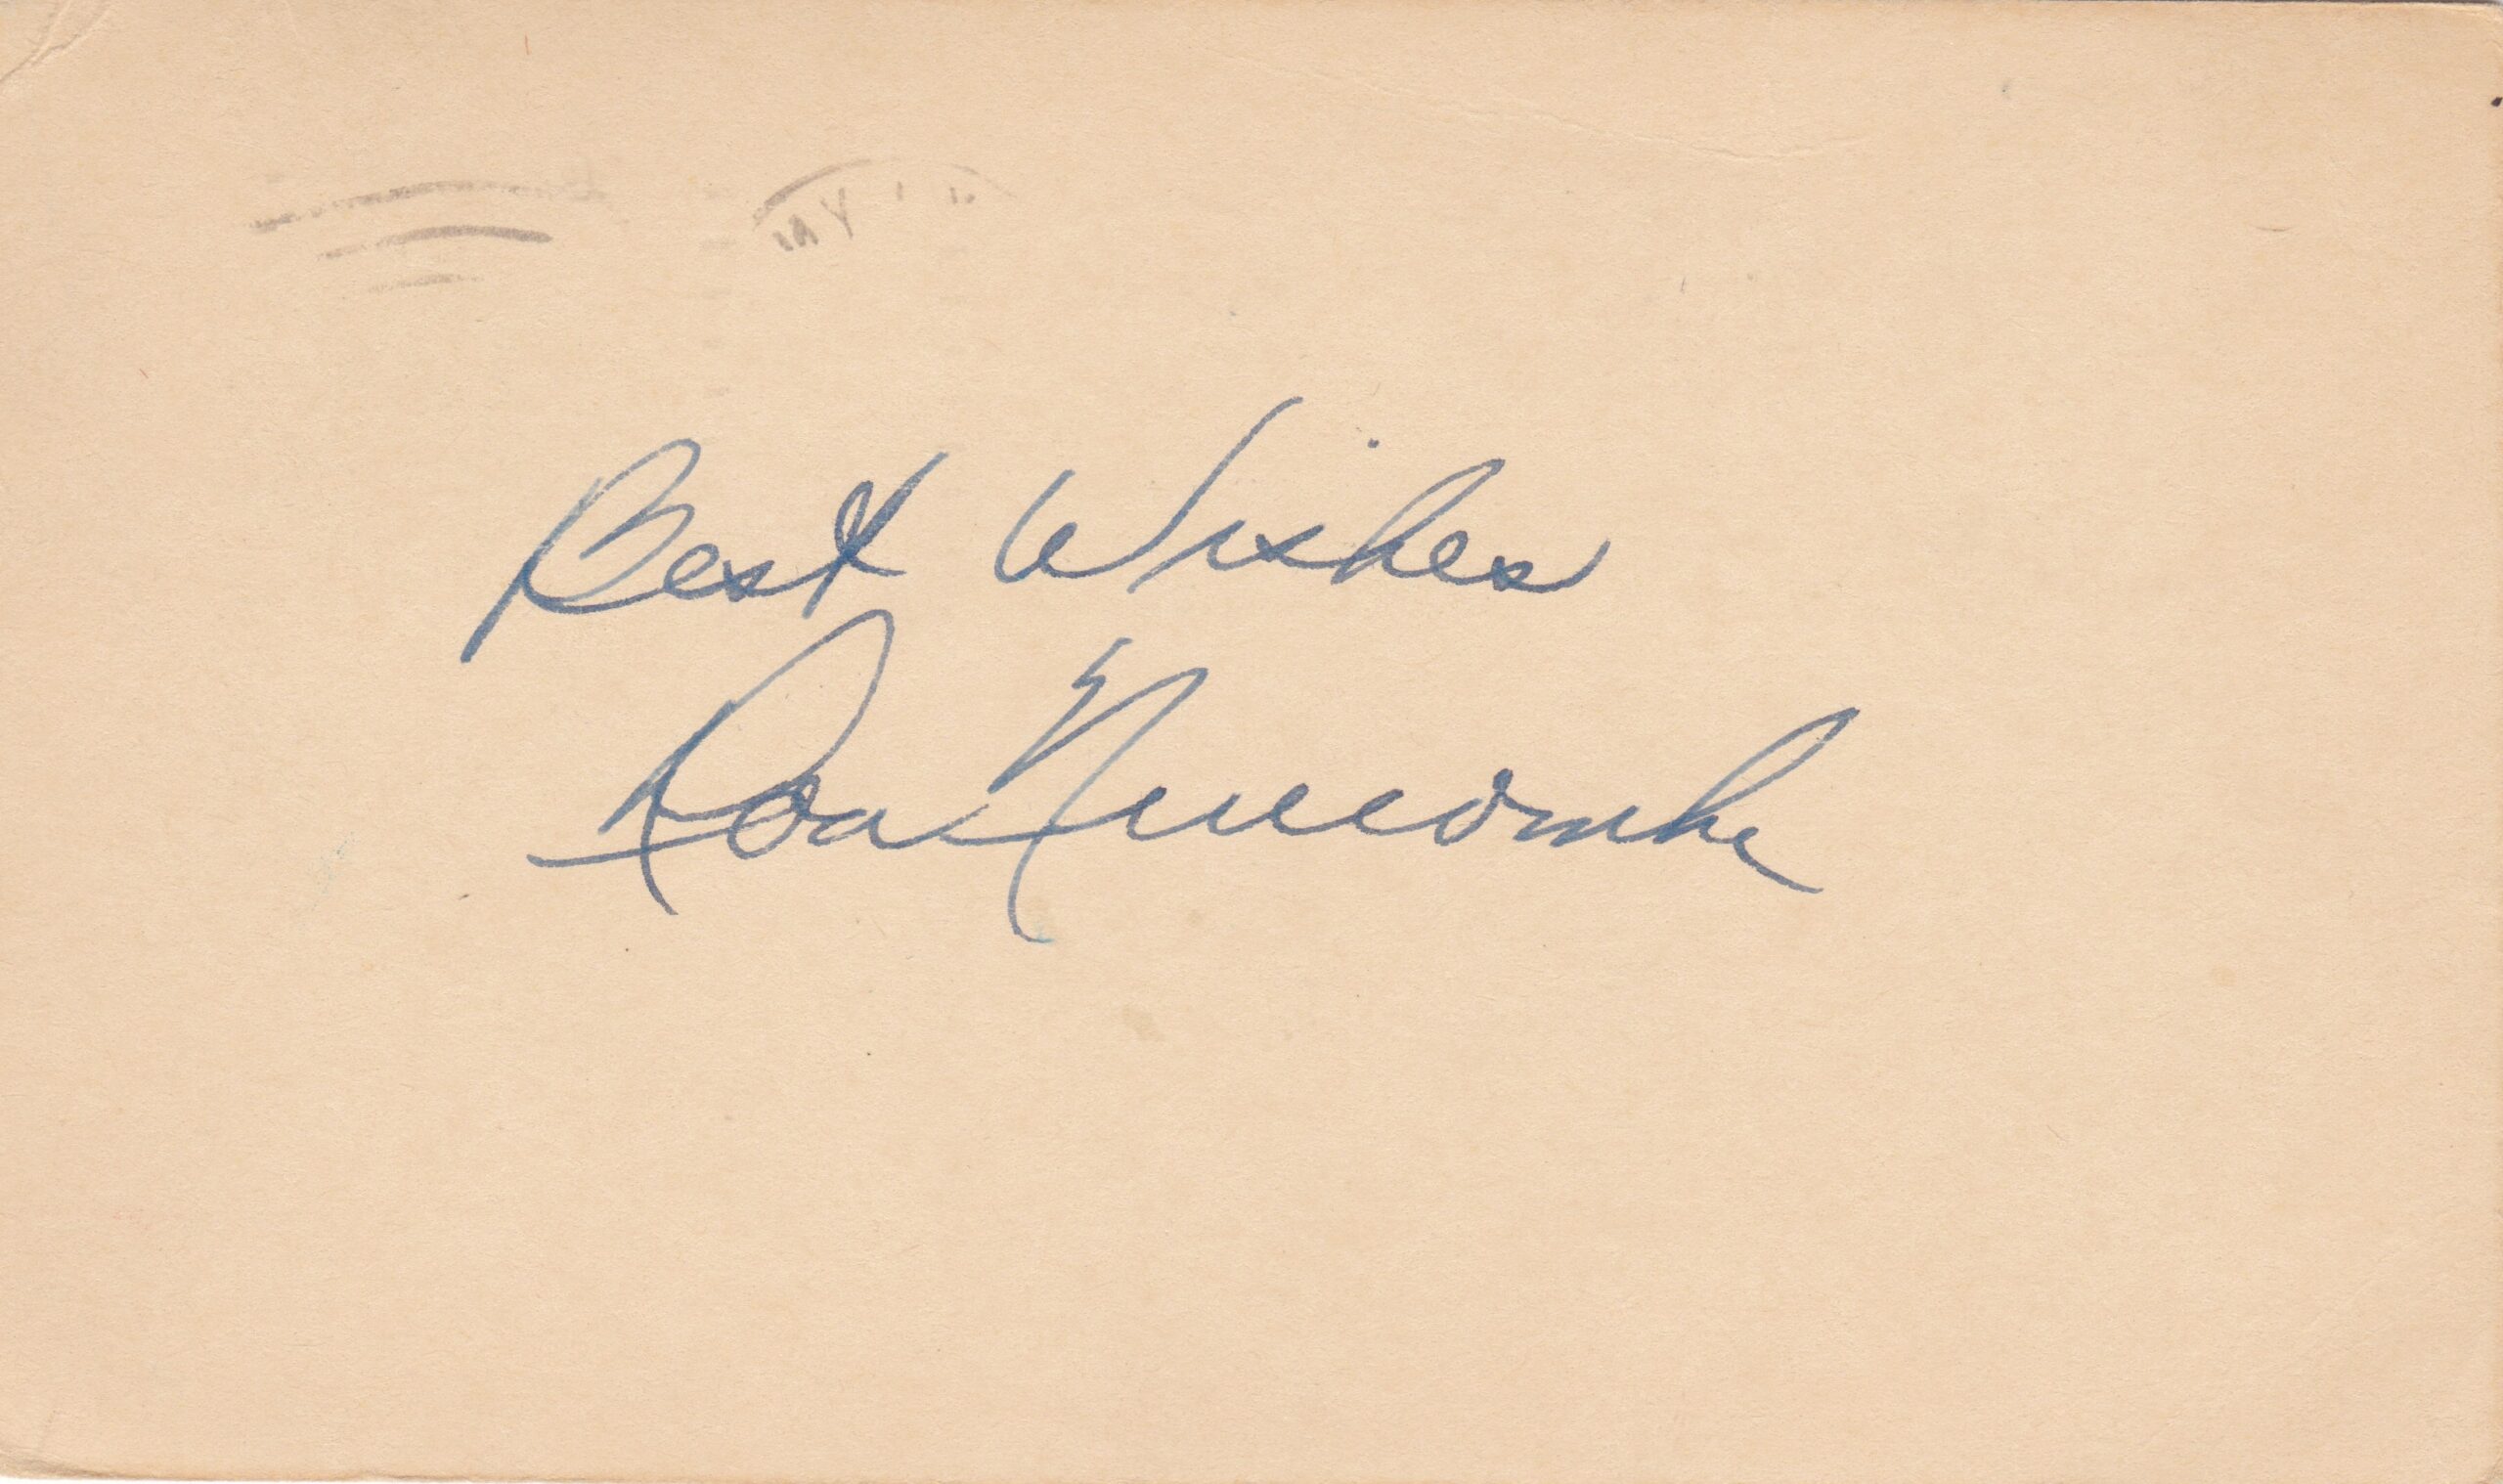 MAY
Best Wishes
Don Newcombe